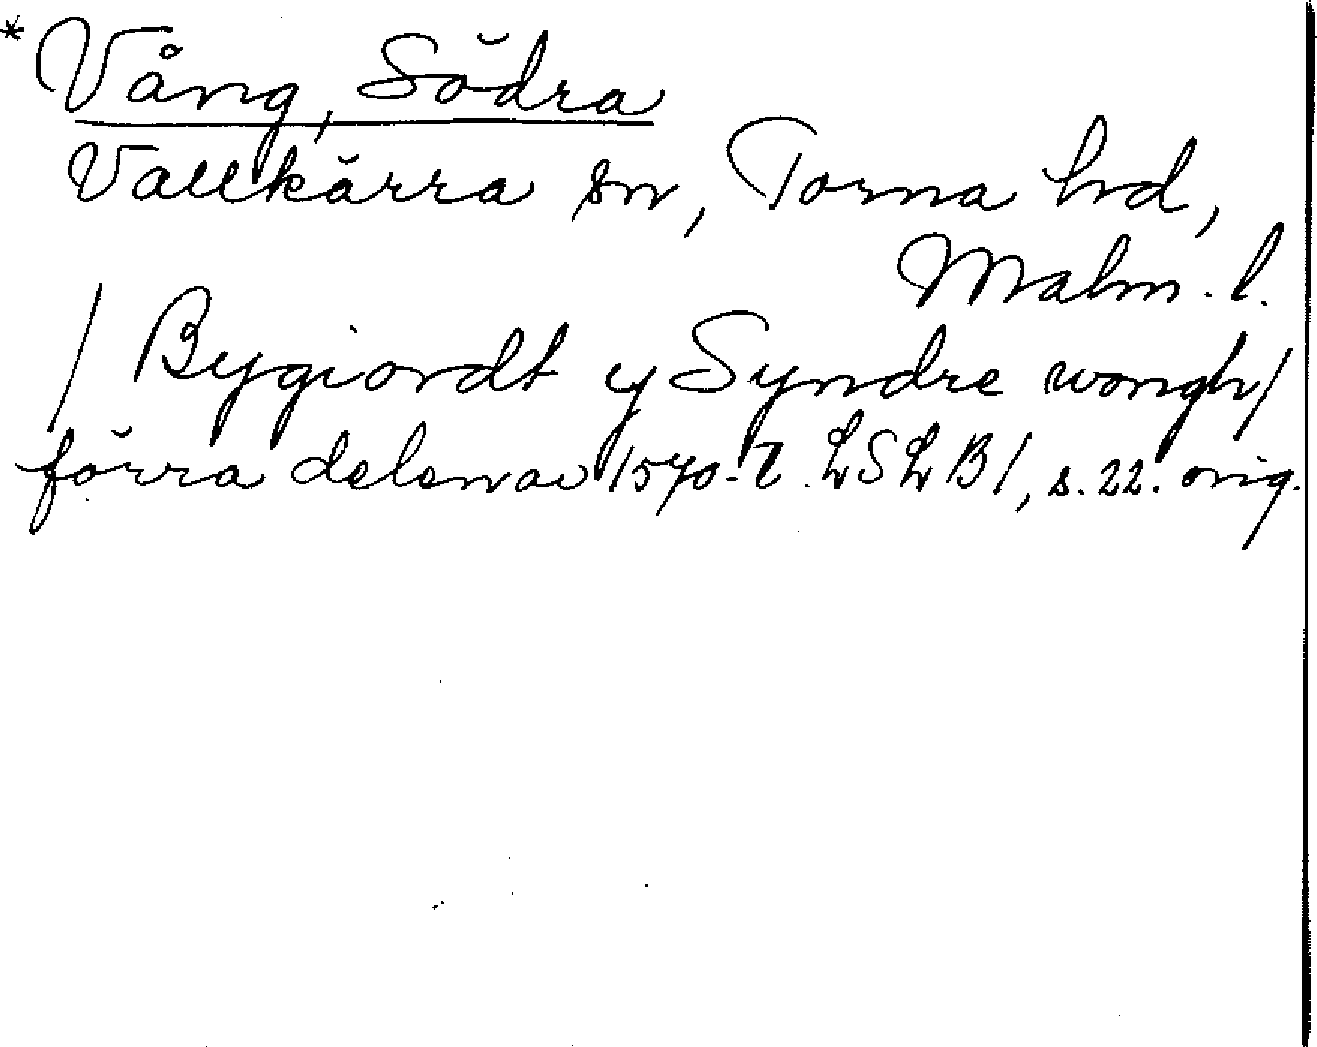 * Vång, Södra
Vallkärra sn, Torna hd,
Malm. l.
/ Bygiordt y Syndre wongh/
förra delen av 1570-t. LSLB1, s. 22. orig.